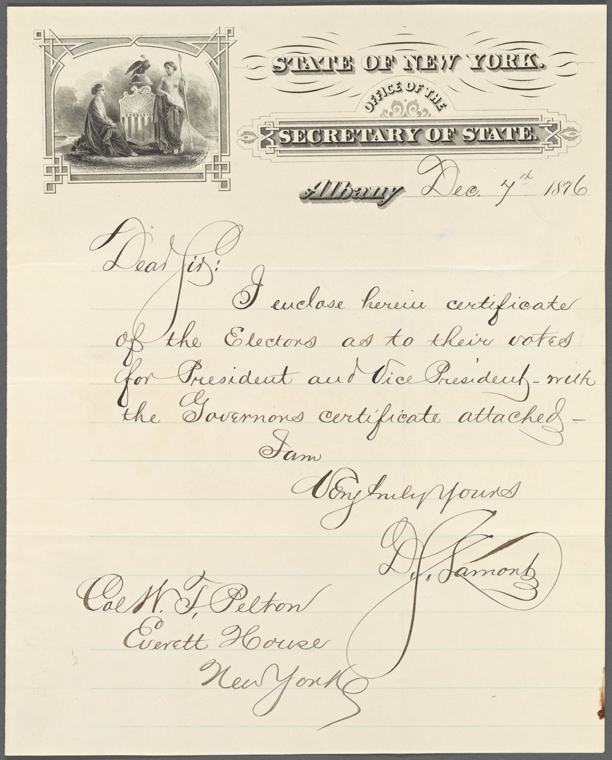 STATE OF NEW YORK.
OFFICE OF THE
SECRETARY OF STATE.
Albany Dec. 7th 1876
Dear Sir:
I enclose herein certificate
of the Electors as to their votes
for President and Vice President - with
the Governors certificate attached -
I am
Very truly Yours
D. S. Lamont
Col W. T. Pelton
Everett House
New York